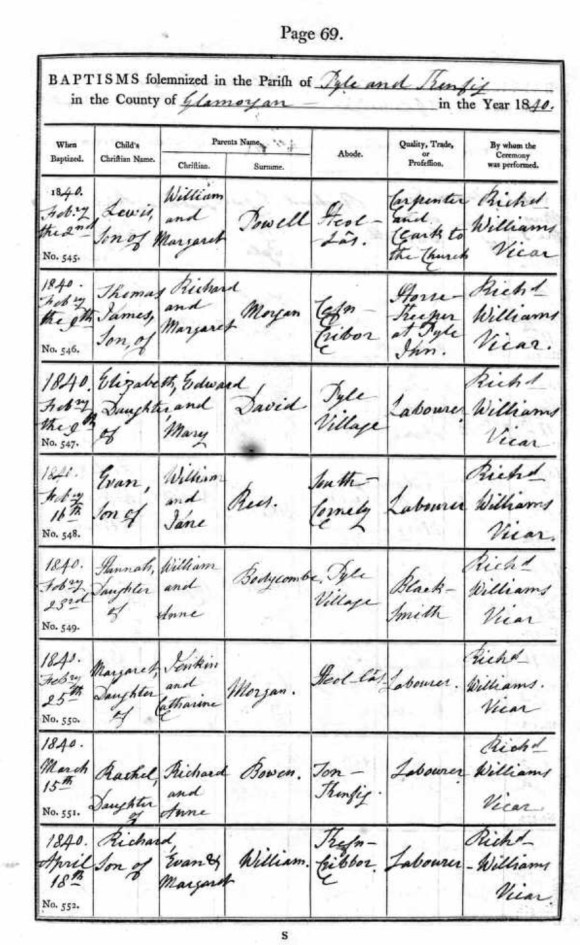 Page 69.
BAPTISMS solemnized in the Parish of Pyle and Kenfig
in the County of Glamorgan in the Year 1840.
When Baptized.
Child's Christian Name.
Parents Name.
Christian.
Surname.
Abode.
Quality, Trade, or Profession.
By whom the Ceremony was performed.
1840.
Feb'y
the 2nd
No. 545.
Lewis,
Son of
William
and
Margaret
Powell
Heol-
Lâs.
Carpenter
and
Clark to
the Church
Rich'd
Williams
Vicar
1840
Feb'y
the 9th
No. 546.
Thomas
James,
Son of
Richard
and
Margaret
Morgan
Cefn
Cribor
Horse-
Keeper
at Pyle
Inn.
Rich'd
Williams
Vicar.
1840.
Feb'y
the 9th
No. 547.
Elizabeth,
Daughter
of
Edward
and
Mary
David
Pyle
Village
Labourer
Rich'd
Williams
Vicar
1840.
Feb'y
16th
No. 548.
Evan,
Son of
William
and
Jane
Rees.
South-
Cornely
Labourer
Rich'd
Williams
Vicar.
1840.
Feb'y
23rd
No. 549.
Hannah,
Daughter
of
William
and
Anne
Bodycombe,
Pyle
Village
Black-
Smith
Rich'd
Williams
Vicar
1840.
Feb'y
25th
No. 550.
Margaret,
Daughter
of
Jenkin
and
Catharine
Morgan.
Heol-lâs
Labourer.
Rich'd
Williams.
Vicar
1840.
March
15th
No. 551.
Rachel,
Daughter
of
Richard
and
Anne
Bowen.
Ton-
Kenfig.
Labourer
Rich'd
Williams
Vicar
1840.
April
18th
No. 552.
Richard,
Son of
Evan &
Margaret
William.
Cribbor
Labourer
Rich'd
Williams
Vicar.
S